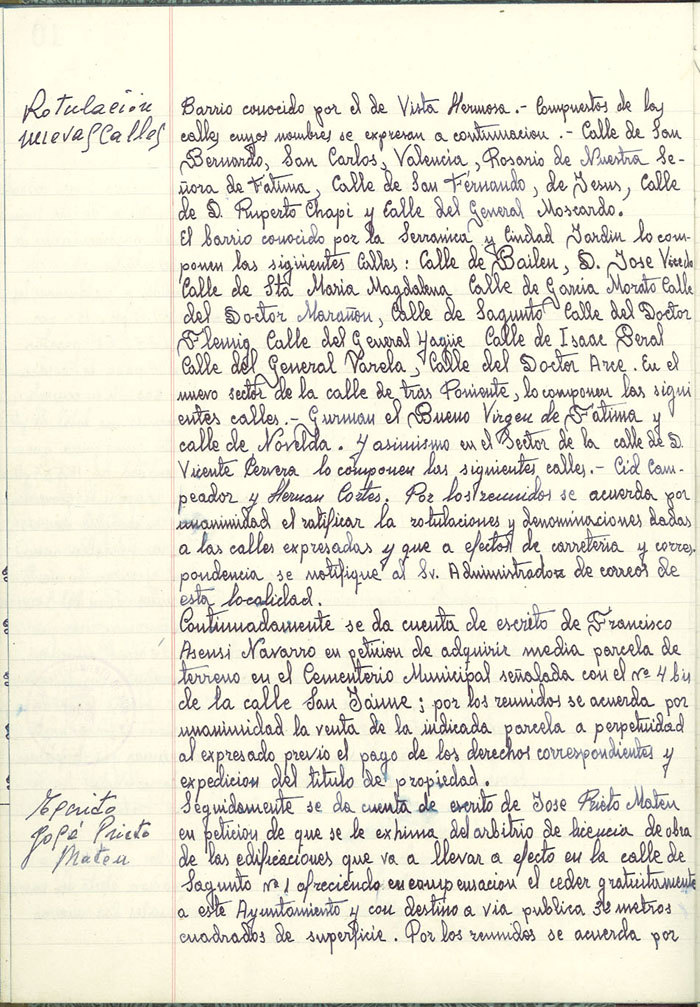 Rotulación
nuevas calles
Barrio conocido por el de Vista Hermosa.- Compuestos de las
calles cuyos nombres se expresan a continuacion.- Calle de San
Bernardo, San Carlos, Valencia, Rosario de Nuestra Se-
ñora de Fatima, Calle de San Fernando, de Jesus, Calle
de D. Ruperto Chapi y Calle del General Moscardo.
El barrio conocido por la Serranica y Ciudad Jardin lo com-
ponen las siguientes Calles: Calle de Bailen, D. Jose Vicedo
Calle de Sta Maria Magdalena Calle de Garcia Morato Calle
del Doctor Marañon, Calle de Sagunto Calle del Doctor
Flemig Calle del General Yagüe Calle de Isaac Peral
Calle del General Varela, Calle del Doctor Arce. En el
nuevo sector de la calle de tras Poniente, lo componen las sigui
entes calles.- Gurman el Bueno Virgen de Fatima y
calle de Novelda. Y asimismo en el Sector de la calle de D.
Vicente Cervera lo componen las siguientes calles.- Cid Cam-
peador y Hernan Cortes. Por los reunidos se acuerda por
unanimidad el ratificar la rotulaciones y denominaciones dadas
a las calles expresadas y que a efectos de carreteria y corres-
pondencia se notifique al Sr. Administrador de correos de
esta localidad.
Continuadamente se da cuenta de escrito de Francisco
Asensi Navarro en peticion de adquirir media parcela de
terreno en el Cementerio Municipal señalada con el nº 4 bis
de la calle San Jaime; por los reunidos se acuerda por
unanimidad la venta de la indicada parcela a perpetuidad
al expresado previo el pago de los derechos correspondientes y
expedicion del titulo de propiedad.
Escrito
José Prieto
Mateu
Seguidamente se da cuenta de escrito de Jose Prieto Mateu
en peticion de que se le exhima del arbitrio de licencia de obra
de las edificaciones que va a llevar a efecto en la calle de
Sagunto nº 1 ofreciendo en compensacion el ceder gratuitamente
a este Ayuntamiento y con destino a via publica 32 metros
cuadrados de superficie. Por los reunidos se acuerda por